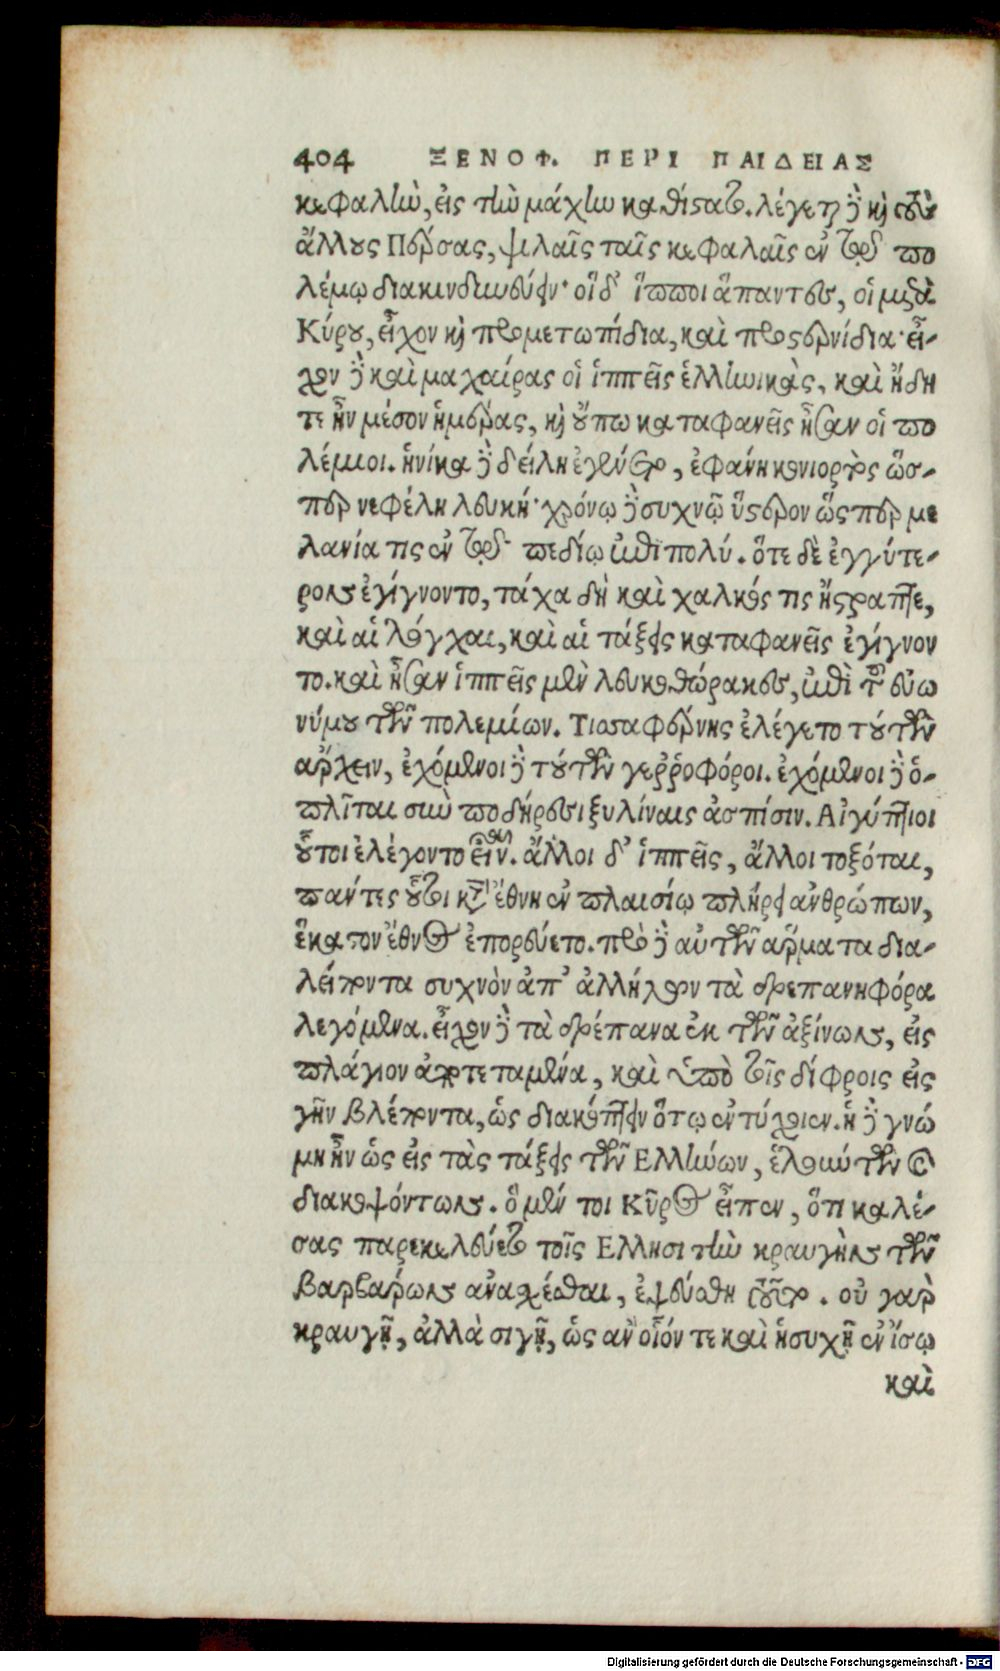 404 ΞΕΝΟΦ. ΠΕΡΙ ΠΑΙΔΕΙΑΣ
κεφαλὴν, εἰς τὴν μάχην καθίστατο. λέγεται δὲ καὶ τοὺς
ἄλλους Πέρσας, ψιλαῖς ταῖς κεφαλαῖς ἐν τῷ πο
λέμῳ διακινδυνεύειν· οἱ δ' ἵπποι ἅπαντες, οἱ μετὰ
Κύρου, εἶχον καὶ προμετωπίδια, καὶ προστερνίδια· εἶ-
χον δὲ καὶ μαχαίρας οἱ ἱππεῖς ἑλληνικὰς, καὶ ἤδη
τε ἦν μέσον ἡμέρας, καὶ οὔπω καταφανεῖς ἦσαν οἱ πο
λέμιοι. ἡνίκα δὲ δείλη ἐγένετο, ἐφάνη κονιορτὸς ὥσ-
περ νεφέλη λευκή· χρόνῳ δὲ συχνῷ ὕστερον ὥσπερ με
λανία τις ἐν τῷ πεδίῳ ἐπὶ πολύ. ὅτε δὲ ἐγγύτε-
ρον ἐγίγνοντο, τάχα δὴ καὶ χαλκός τις ἤστραπτε,
καὶ αἱ λόγχαι, καὶ αἱ τάξεις καταφανεῖς ἐγίγνον
το. καὶ ἦσαν ἱππεῖς μὲν λευκοθώρακες, ἐπὶ τοῦ εὐω
νύμου τῶν πολεμίων. Τισσαφέρνης ἐλέγετο τούτων
ἄρχειν, ἐχόμενοι δὲ τούτων γεῤῥοφόροι. ἐχόμενοι δὲ ὁ-
πλῖται σὺν ποδήρεσι ξυλίναις ἀσπίσιν. Αἰγύπτιοι
οὗτοι ἐλέγοντο εἶναι. ἄλλοι δ' ἱππεῖς, ἄλλοι τοξόται,
πάντες οὗτοι κατ' ἔθνη ἐν πλαισίῳ πλήρει ἀνθρώπων,
ἕκαστον ἔθνος ἐπορεύετο. πρὸ δὲ αὐτῶν ἅρματα δια-
λείποντα συχνὸν ἀπ' ἀλλήλων τὰ δρεπανηφόρα
λεγόμενα. εἶχον δὲ τὰ δρέπανα ἐκ τῶν ἀξίνων, εἰς
πλάγιον ἀποτεταμένα, καὶ ὑπὸ τοῖς δίφροις εἰς
γῆν βλέποντα, ὡς διακόπτειν ὅτῳ ἐντύχοιεν. ἡ δὲ γνώ
μη ἦν ὡς εἰς τὰς τάξεις τῶν Ελλήνων, ἐλῶν τῶν καὶ
διακοψόντων. ὃ μέν τοι Κῦρος εἶπεν, ὅτι καλέ-
σας παρεκελεύετο τοῖς Ελλησι τὴν κραυγὴν τῶν
βαρβάρων ἀνασχέσθαι, ἐψεύσθη τοῦτο. οὐ γὰρ
κραυγῇ, ἀλλὰ σιγῇ, ὡς ἀνοῖόν τε καὶ ἡσυχῇ ἐν ἴσῳ
καὶ
Digitalisierung gefördert durch die Deutsche Forschungsgemeinschaft - DFG